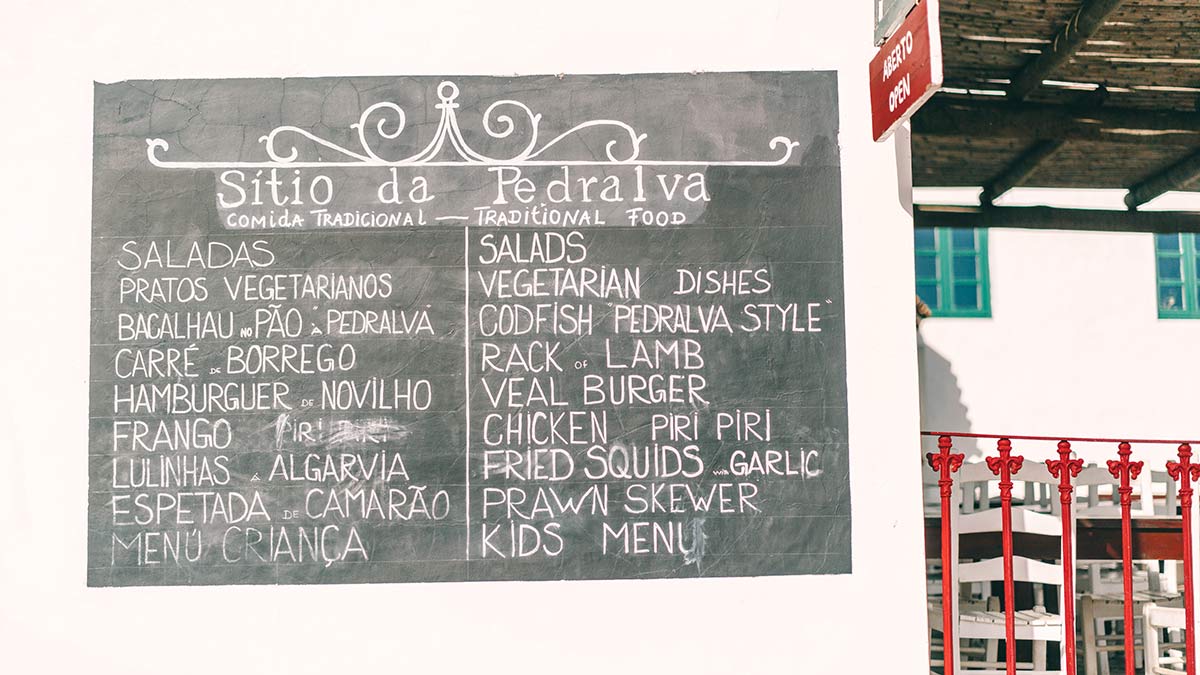 Sítio da Pedralva
COMIDA TRADICIONAL — TRADITIONAL FOOD
SALADAS
PRATOS VEGETARIANOS
BACALHAU NO PÃO "à PEDRALVA
CARRÉ DE BORREGO
HAMBURGUER DE NOVILHO
FRANGO PIRI PIRI
LULINHAS à ALGARVIA
ESPETADA DE CAMARÃO
MENÚ CRIANÇA
SALADS
VEGETARIAN DISHES
CODFISH "PEDRALVA STYLE"
RACK OF LAMB
VEAL BURGER
CHICKEN PIRI PIRI
FRIED SQUIDS WITH GARLIC
PRAWN SKEWER
KIDS MENU
ABERTO
OPEN